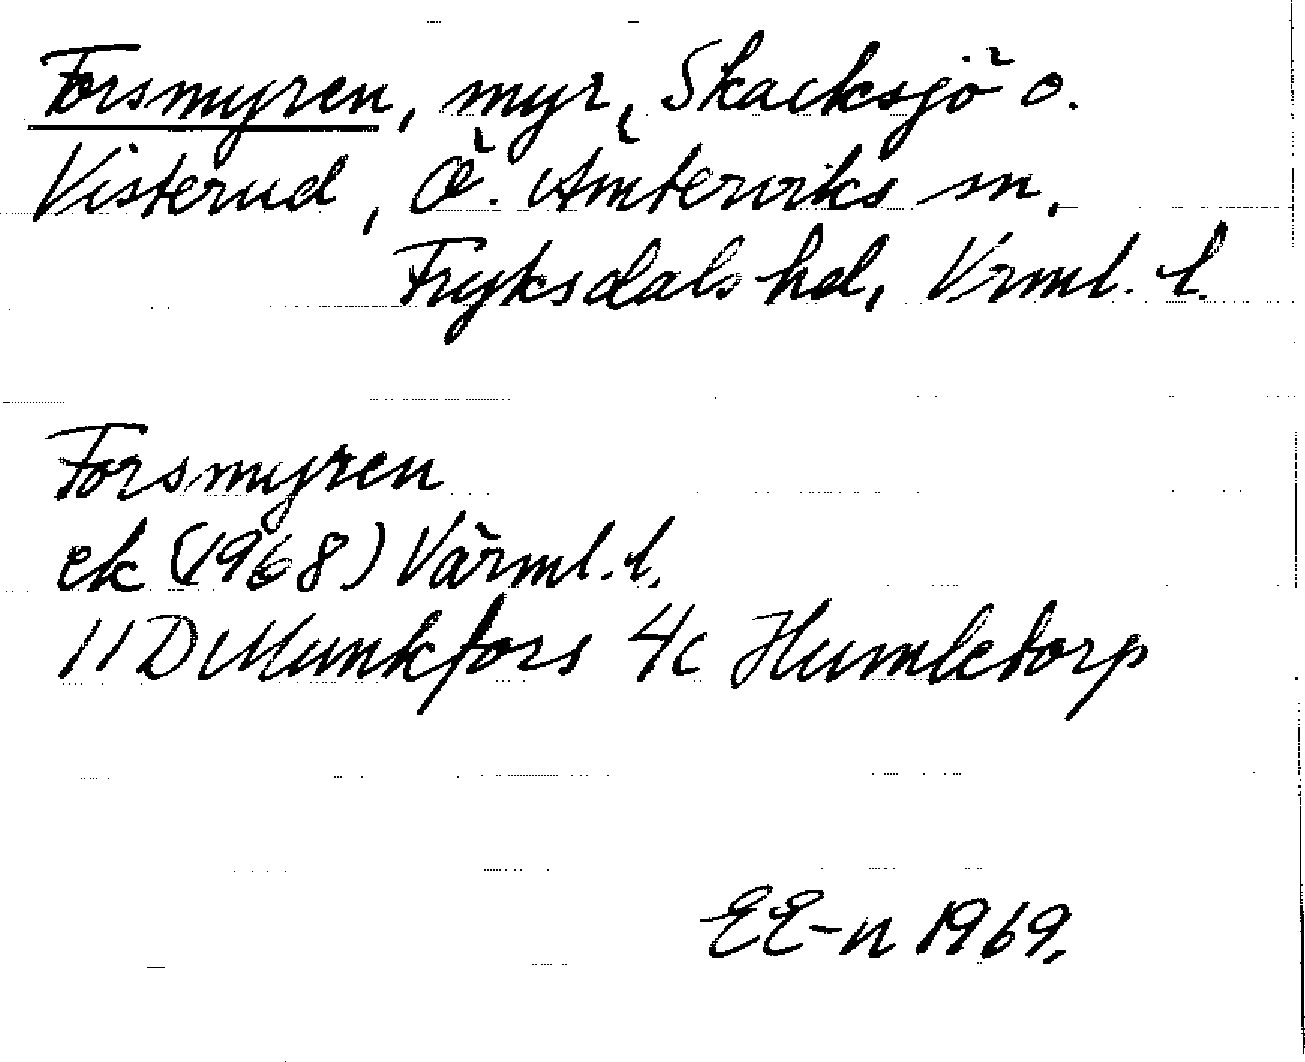 Forsmyren, myr, Skacksjö o.
Visterud, Ö. Ämterviks sn,
Fryksdals hd, Vrml. l.
Forsmyren
ek (1968) Värml. l.
11D Munkfors 4c Humletorp
EE-n 1969.